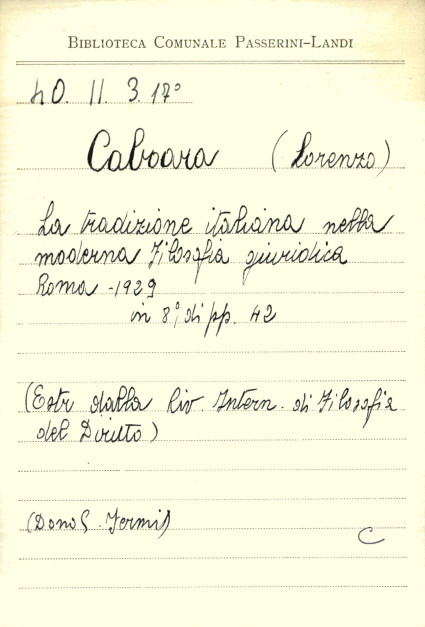 BIBLIOTECA COMUNALE PASSERINI-LANDI
40. II. 3. 17°
Caboara (Lorenzo)
La tradizione italiana nella
moderna Filosofia giuridica
Roma - 1929
in 8°, di pp. 42
(Estr dalla Riv. Intern. di Filosofia
del Diritto)
(Dono S. Fermi)
C